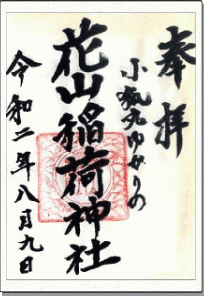 奉拝
小狐丸ゆかりの
花山稲荷神社
令和二年八月九日